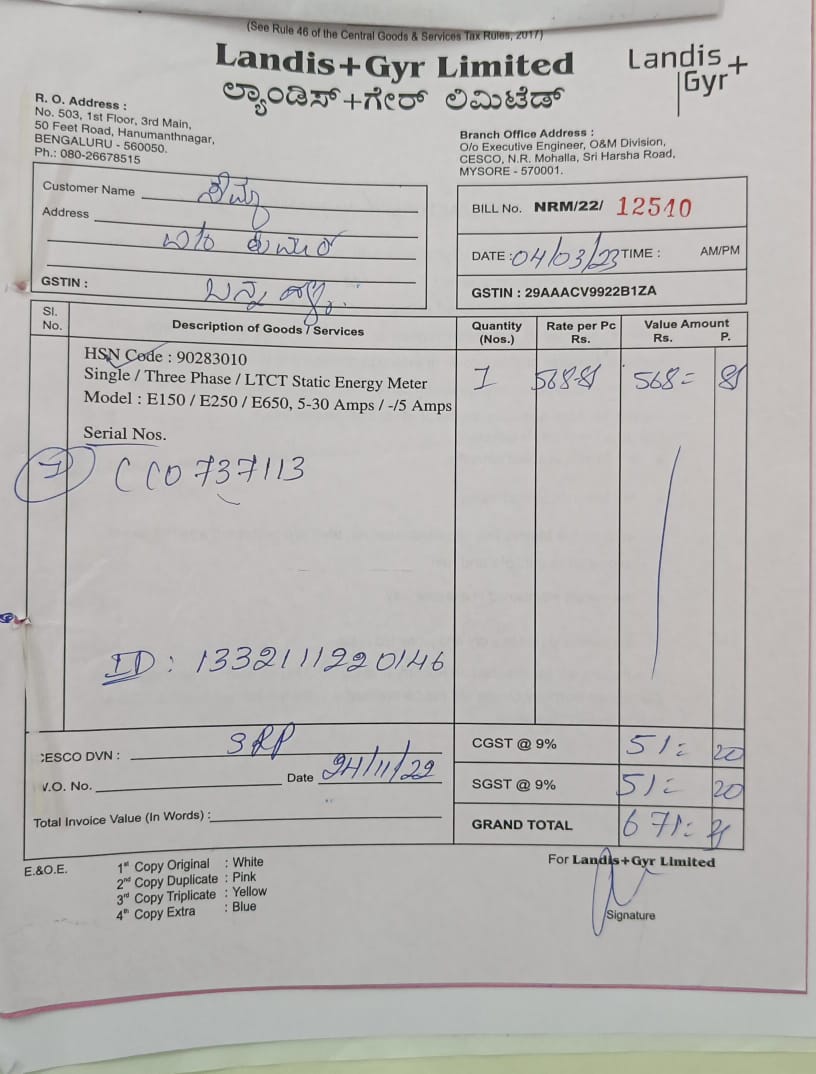 (See Rule 46 of the Central Goods & Services Tax Rules, 2017)
Landis+Gyr Limited
ಲ್ಯಾಂಡಿಸ್+ಗೇರ್ ಲಿಮಿಟೆಡ್
Landis
Gyr+
R. O. Address :
No. 503, 1st Floor, 3rd Main,
50 Feet Road, Hanumanthnagar,
BENGALURU - 560050.
Ph.: 080-26678515
Branch Office Address :
O/o Executive Engineer, O&M Division,
CESCO, N.R. Mohalla, Sri Harsha Road,
MYSORE - 570001.
Customer Name
Address
GSTIN :
BILL No. NRM/22/ 12540
DATE : 04/03/23 TIME : AM/PM
GSTIN : 29AAACV9922B1ZA
Sl. No. Description of Goods / Services Quantity (Nos.) Rate per Pc Rs. Value Amount Rs. P.
HSN Code : 90283010
Single / Three Phase / LTCT Static Energy Meter 1 568-81 568= 81
Model : E150 / E250 / E650, 5-30 Amps / -/5 Amps
Serial Nos.
1 CC0737113
ID : 1332111220146
CESCO DVN : SRP
CGST @ 9% 51= 20
W.O. No. Date 24/11/22
SGST @ 9% 51= 20
Total Invoice Value (In Words) :
GRAND TOTAL 671= 21
E.&O.E.
1st Copy Original : White
2nd Copy Duplicate : Pink
3rd Copy Triplicate : Yellow
4th Copy Extra : Blue
For Landis+Gyr Limited
Signature